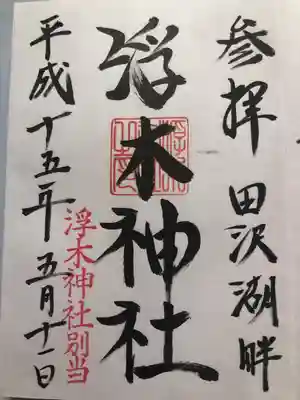 参拝 田沢湖畔
浮木神社
平成十五年五月十一日
浮木神社別当